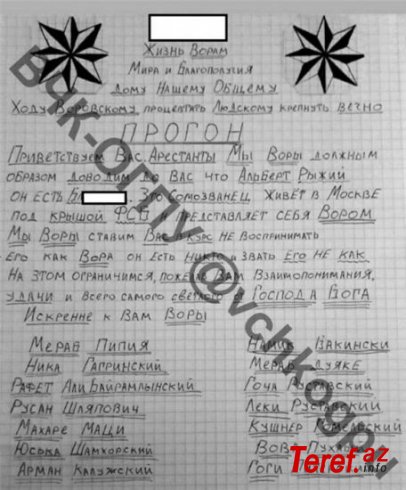 Жизнь Ворам
Мира и Благополучия
Дому Нашему Общему
Ходу Воровскому процветать Людскому крепнуть вечно
ПРОГОН
Приветствуем Вас Арестанты Мы Воры должным
образом доводим до Вас что Альберт Рыжий
он есть Это Сомозванец живёт в Москве
под крышой ФСБ и представляет себя Вором
Мы Воры ставим Вас в курс не воспринимать
Его как Вора он Есть Никто и звать Его не как
На этом ограничимся, пожелав Вам Взаимопонимания,
удачи и всего самого светлого от Господа Бога
Искренне к Вам Воры
Мераб Пипия
Ника Гагринский
Рафет Али Байрамлынский
Русан Шляпович
Махаре Маци
Юська Шамхорский
Арман Калужский
Намик Бакински
Мераб Дуяке
Гоча Руставский
Леки Руставский
Кушнер Гомельский
Вова
Гоги
ВЧК-ОГПУ @vchkogpu
Teref.az
info